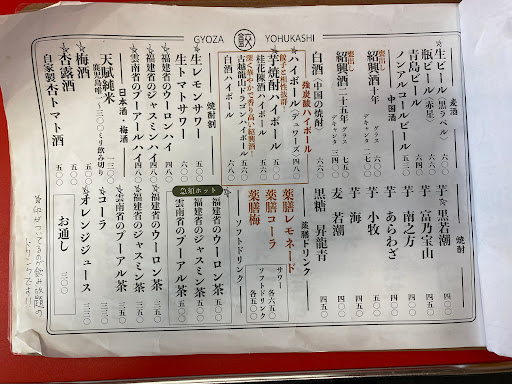 GYOZA 餃 YOHUKASHI
麦酒
☆生ビール(黒ラベル) 六〇〇
瓶ビール(赤星) 六八〇
青島ビール 六八〇
ノンアルコールビール 五〇〇
中国酒
紹興酒十年
グラス 六〇〇
デキャンタ
紹興酒二十五年
グラス 七五〇
デキャンタ
白酒(中国の焼酎) 六八〇
強炭酸ハイボール
☆ハイボール(デュワーズ) 四八〇
餃子と相性抜群!
☆芋焼酎ハイボール 五〇〇
桂花陳酒ハイボール 五八〇
古越龍山ドラゴンハイボール
深く華やかで香り高い紹興酒
白酒ハイボール 六八〇
焼酎割
☆生レモンサワー 五〇〇
生トマトサワー 五八〇
☆福建省のウーロンハイ 四八〇
☆福建省のジャスミンハイ 四八〇
☆雲南省のプーアールハイ 四八〇
日本酒・梅酒
天賦純米
☆梅酒 五〇〇
☆杏露酒 五〇〇
自家製杏トマト酒 五八〇
焼酎
芋 ☆黒若潮 四〇〇
芋 富乃宝山 四五〇
芋 南之方 四〇〇
芋 あらわざ 四五〇
芋 小牧 五〇〇
芋 海 四五〇
麦 若潮 四〇〇
黒糖 昇龍 四五〇
薬膳ドリンク
薬膳レモネード
薬膳コーラ
薬膳梅
サワー 各六五〇
ソフトドリンク 各五〇〇
ソフトドリンク
急須ホット
福建省のウーロン茶 五〇〇
福建省のジャスミン茶 五〇〇
雲南省のプーアル茶 五〇〇
☆福建省のウーロン茶 三五〇
☆福建省のジャスミン茶 三五〇
☆雲南省のプーアル茶 三五〇
☆コーラ 三三〇
☆オレンジジュース 三三〇
お通し 三〇〇
☆印がついてるのが飲み放題の
ドリンクです!!